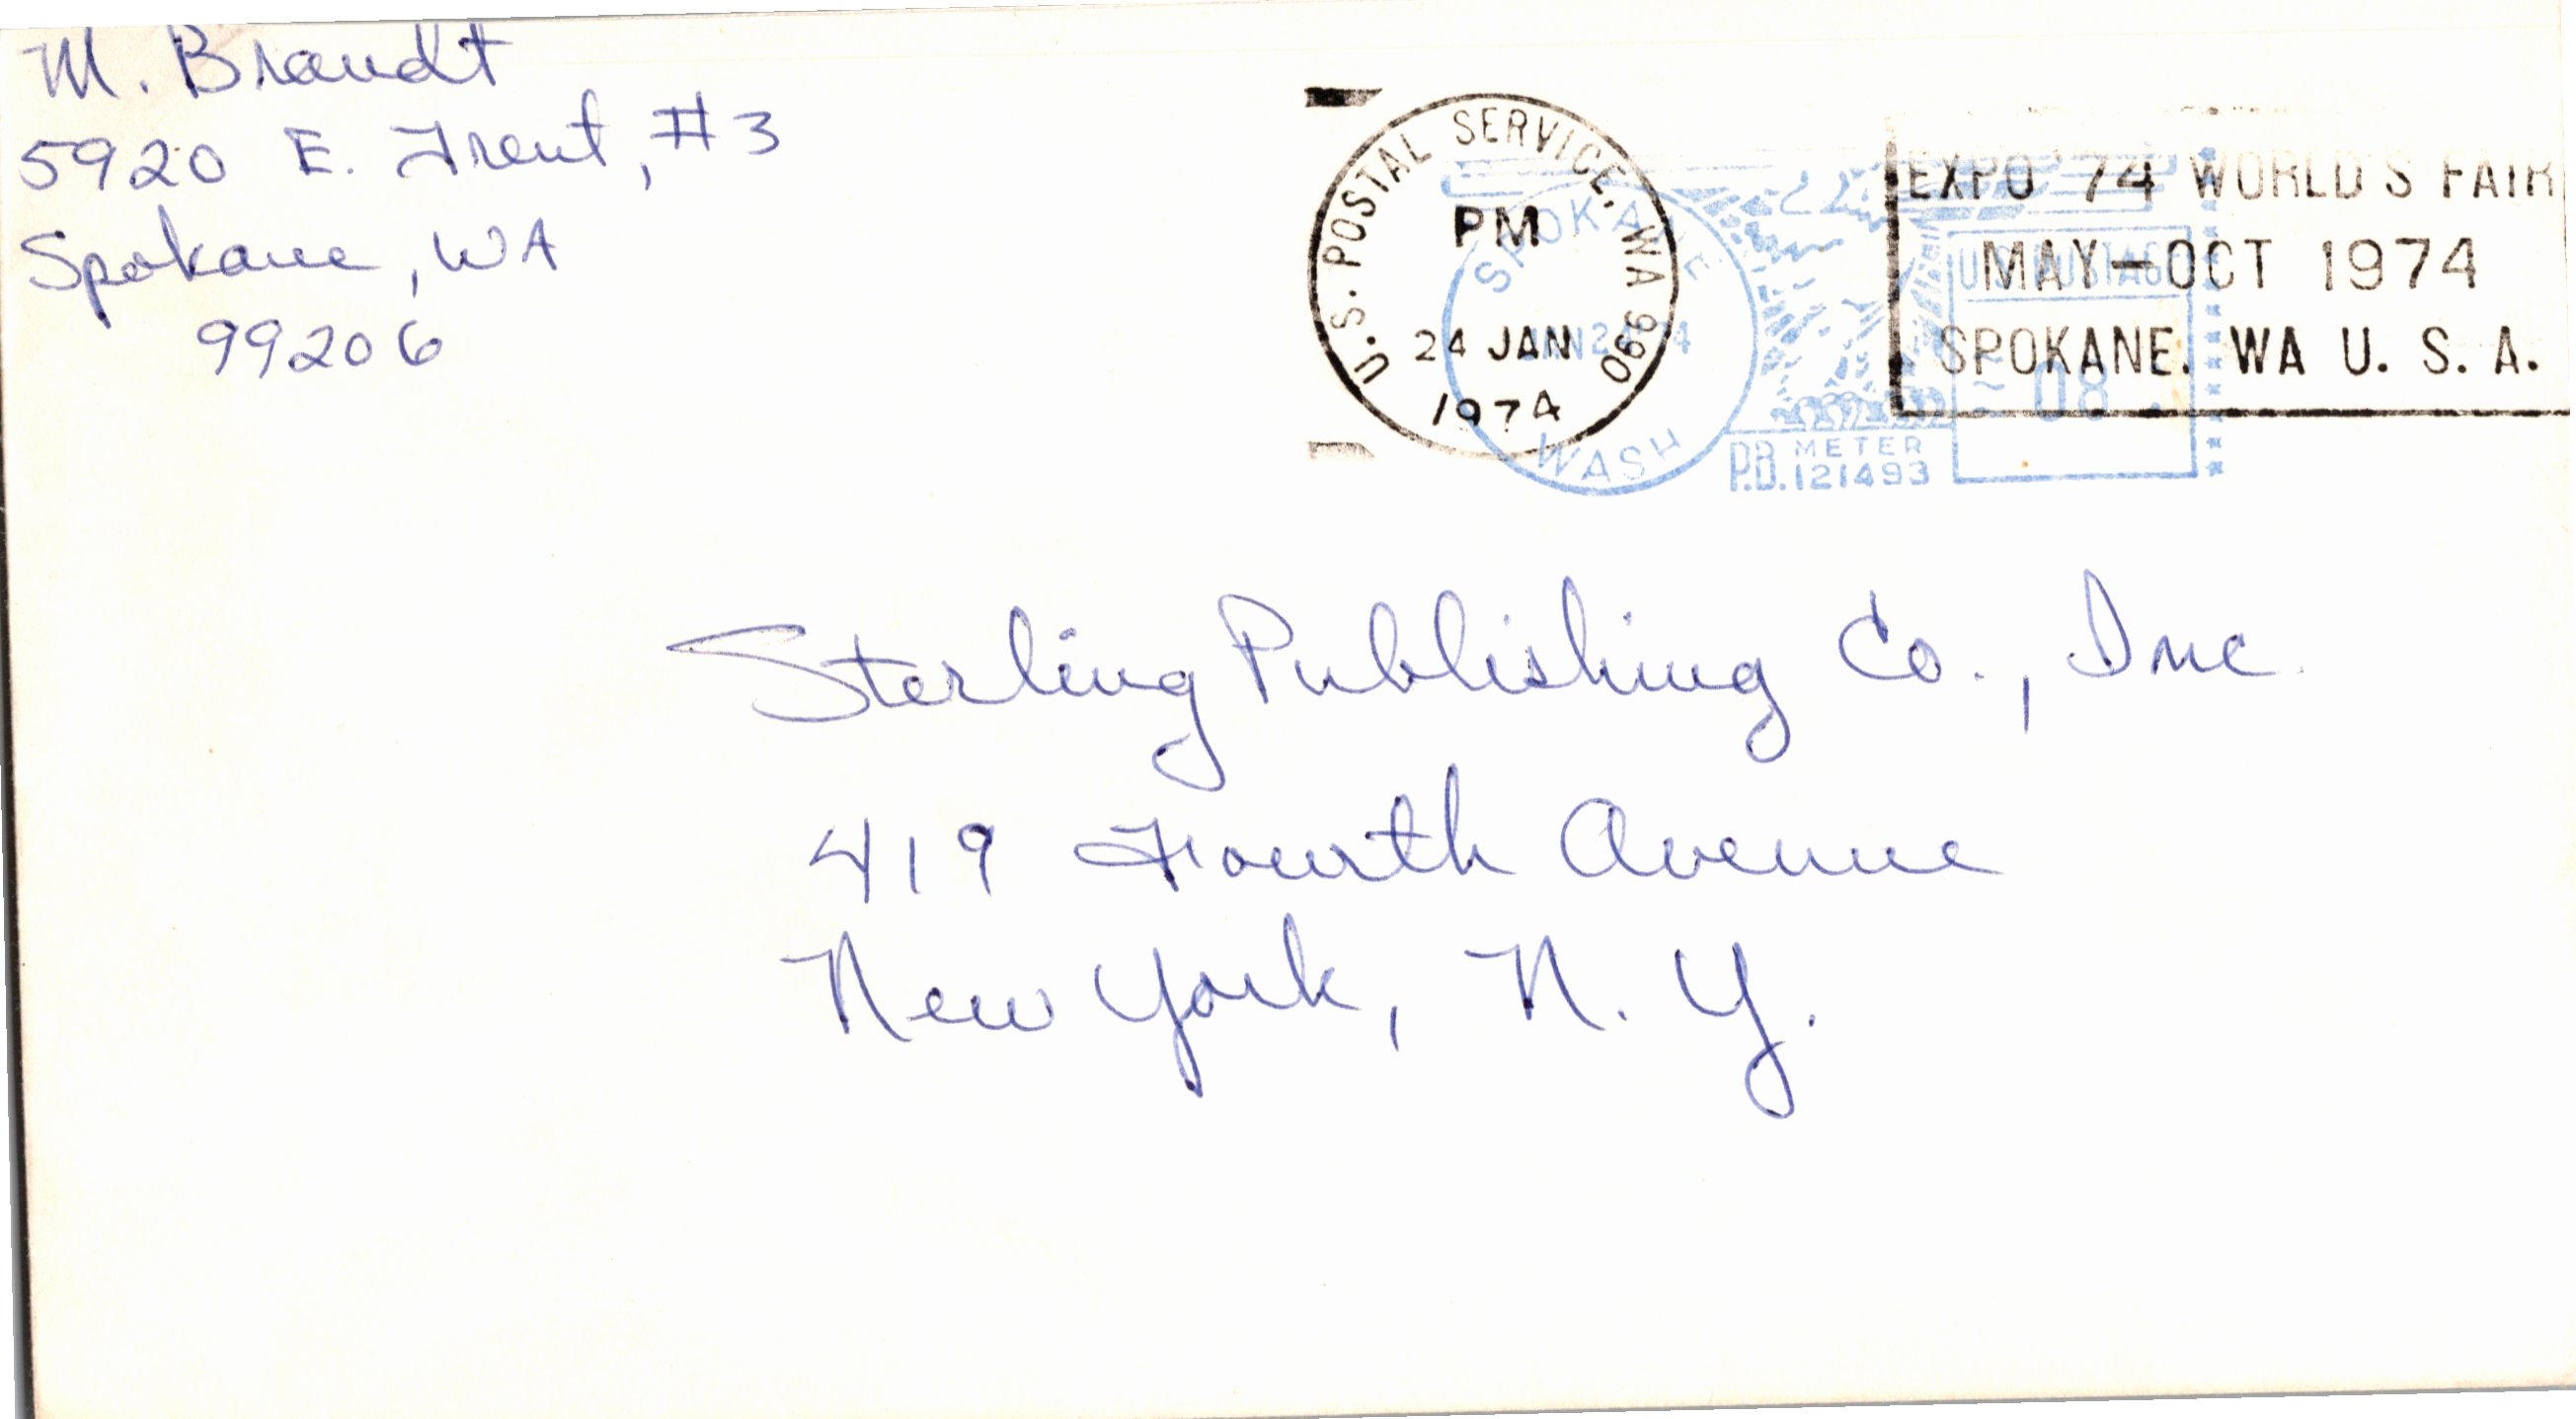 M. Brandt
5920 E. Trent, #3
Spokane, WA
99206
U.S. POSTAL SERVICE, WA 990
PM
24 JAN
1974
EXPO '74 WORLD'S FAIR
MAY-OCT 1974
SPOKANE, WA U. S. A.
SPOKANE
JAN 24 '74
WASH
U.S. POSTAGE
08
P.B. METER
121493
Sterling Publishing Co., Inc.
419 Fourth Avenue
New York, N. Y.